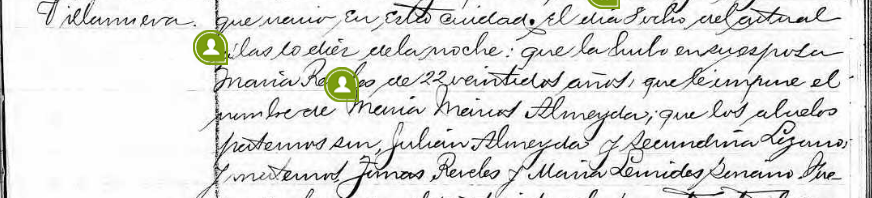 Villanueva. que nacio, en esta ciudad, el día 8 ocho del actual
a las 10 diez de la noche: que la hubo en su esposa
Maria Reveles de 22 veintidos años, que le impone el
nombre de Maria Almeyda; que los abuelos
paternos son, Julian Almeyda y Secundina Lozano;
y maternos, Reveles y Maria Serrano.